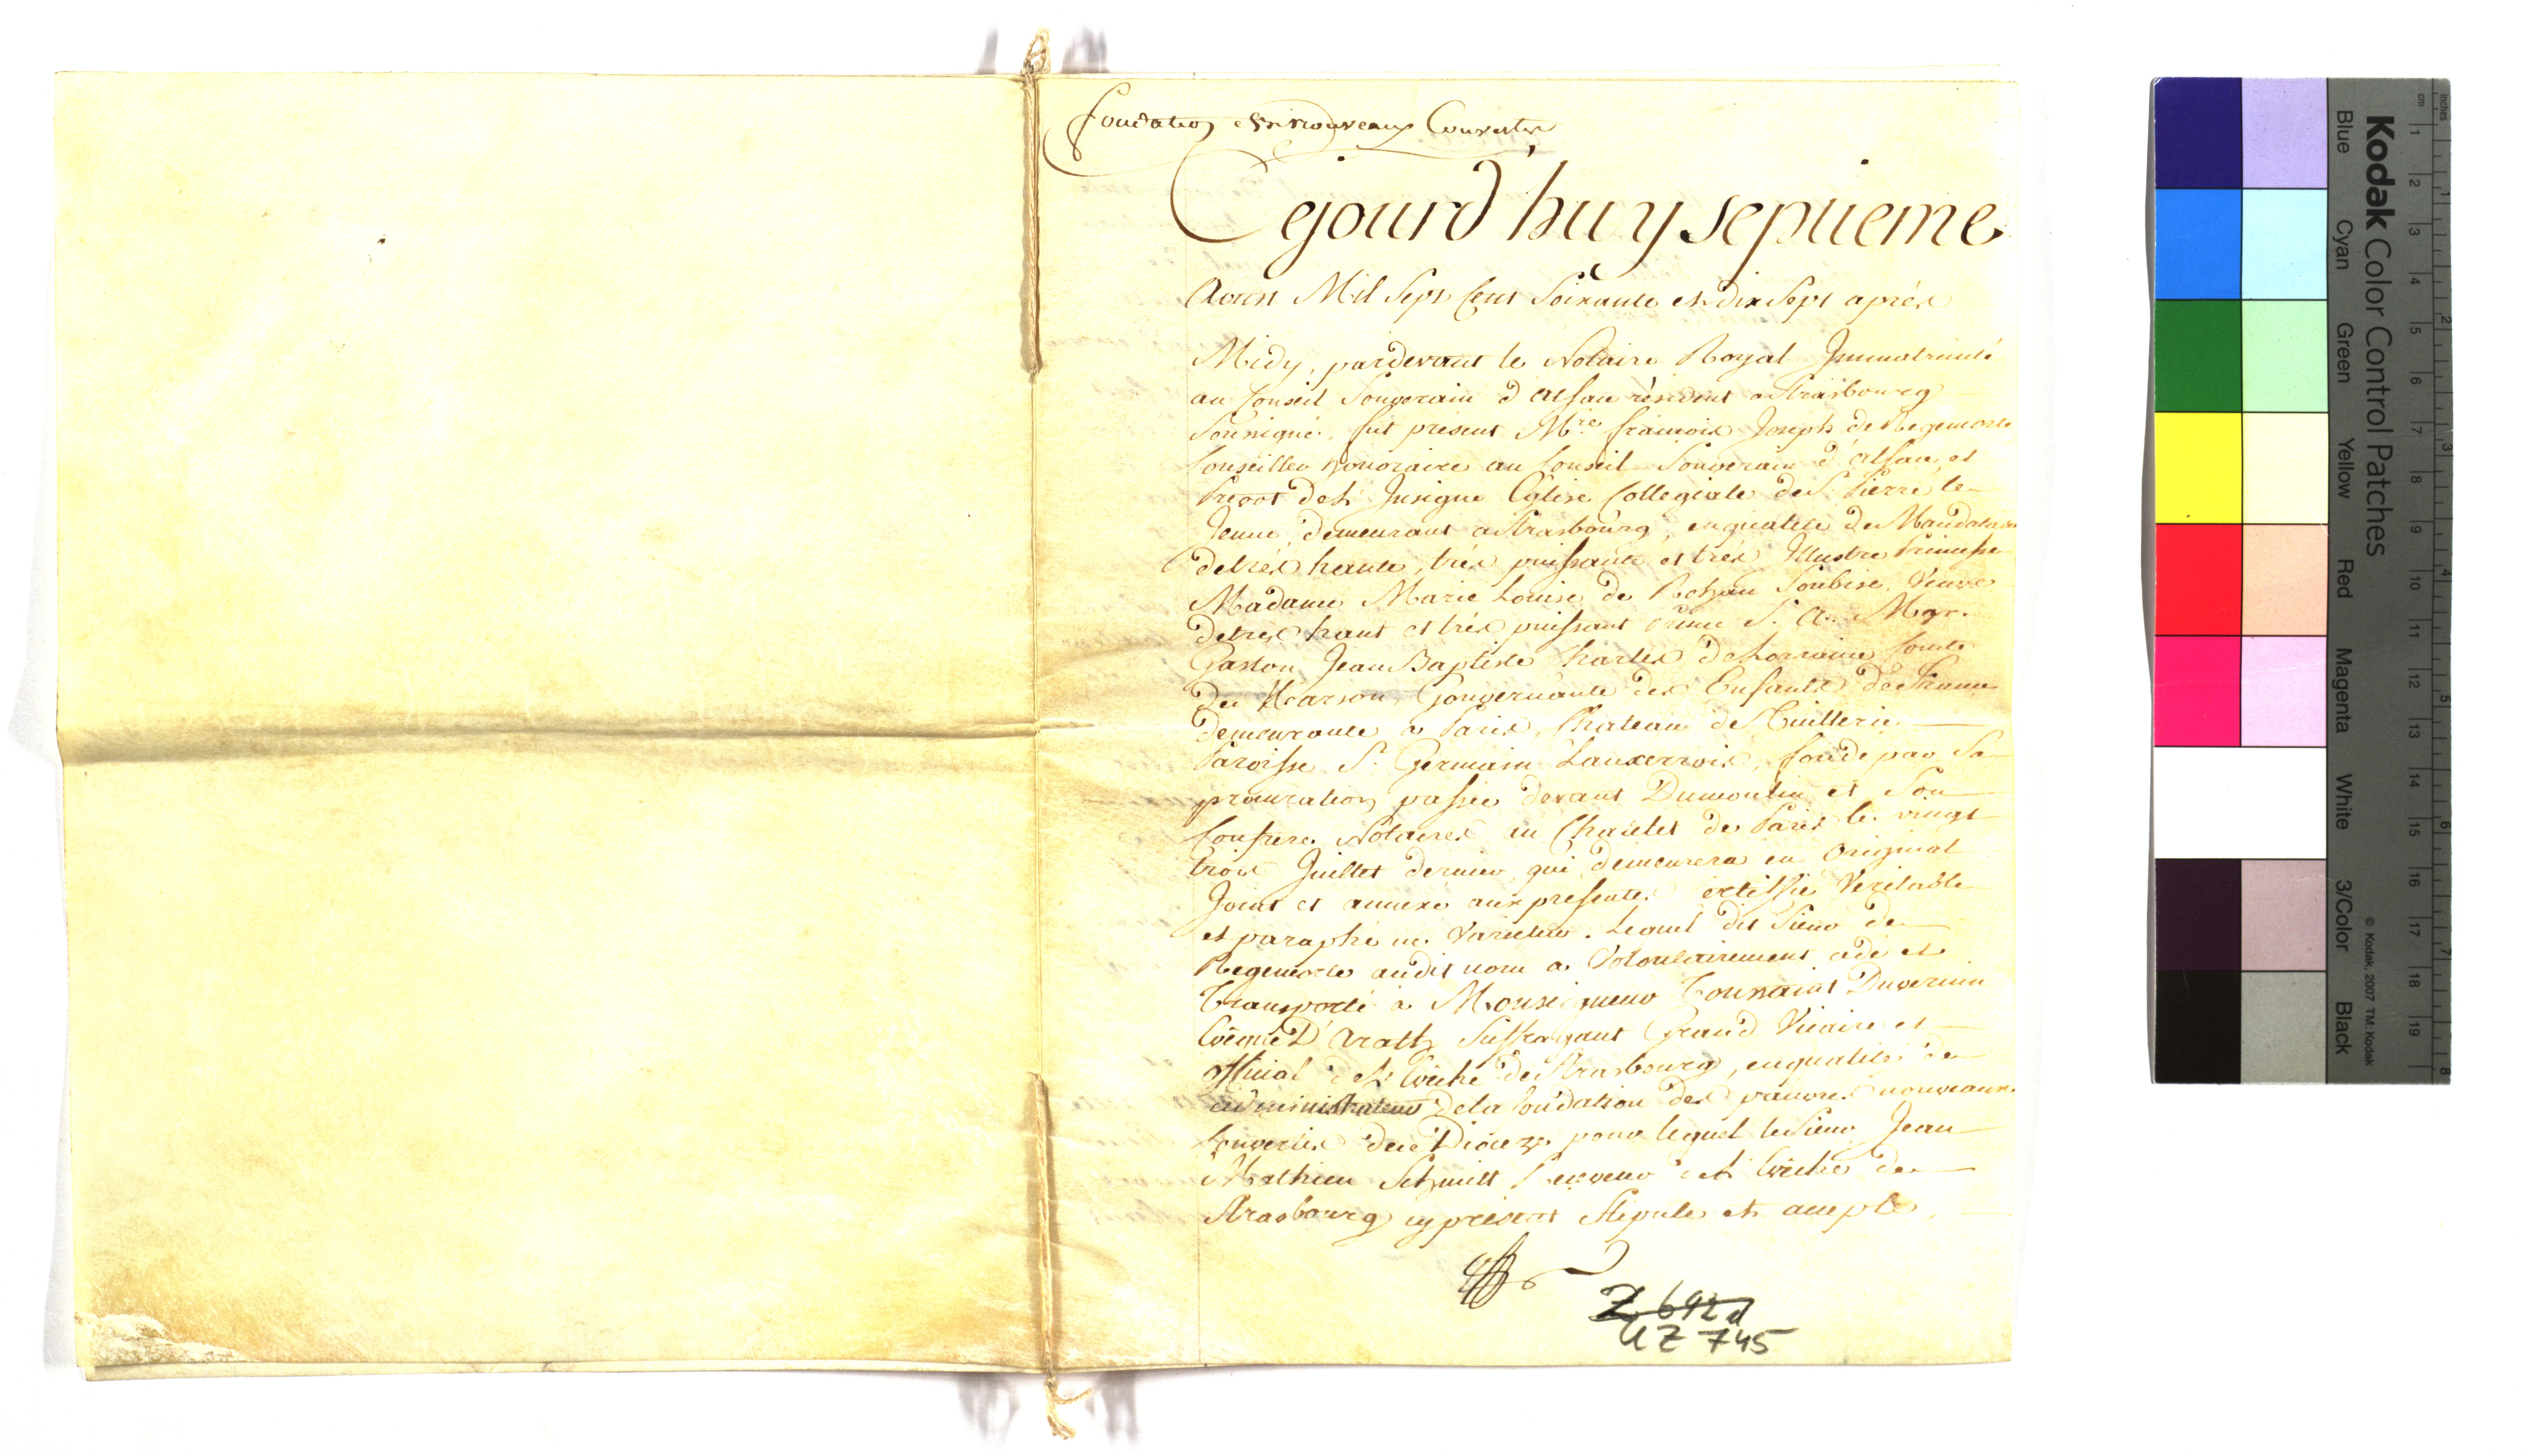 fondation des nouveaux Convertis
Cejourd'huy septieme
Aoust Mil Sept Cent Soixante et dix Sept aprés
Midy, pardevant le Notaire Royal Immatriculé
au Conseil Souverain d'Alsace résident a Strasbourg
Soussigné, fut present Mre. francois Joseph de Regemorte
Conseiller honoraire au Conseil Souverain d'Alsace et
Prevot de L'Insigne Eglise Collegiale de St. Pierre le
Jeune, demeurant a Strasbourg, en qualité de Mandataire
de trés haute, trés puissante et trés Illustre Princesse
Madame Marie Louise de Rohan Soubise, Veuve
de tres haut et trés puissant Prince S. A. Mgr.
Gaston Jean Baptiste Charles de Lorraine Comte
de Marson, Gouvernante des Enfants de France
demeurante a Paris, Chateau des Tuilleries
Paroisse St. Germain Lauxerrois, fondé par Sa
procuration passée devant Dumoulin et Son
Confrere Notaires au Chatelet de Paris le vingt
trois Juillet dernier qui demeurera en Original
Joint et annexé aux presentes certiffié Veritable
et paraphé ne Varietur. Lequel dit Sieur de
Regemorte audit nom a Volontairement cedé et
Transporté à Monseigneur Toussaint Duvernin
Evêque D'Arath, Suffragant Grand Vicaire et
official de L'Evêché de Strasbourg, en qualité de
administrateur de la fondation des pauvres nouveaux
Convertis de ce Dioceze pour lequel le Sieur Jean
Mathieu Schmitt Receveur de L'Evêché de
Strasbourg cy présent Stipule et accepte,
Z 692 d
UZ 745
Kodak Color Control Patches
© Kodak, 2007 TM: Kodak
Blue Cyan Green Yellow Red Magenta White 3/Color Black
inches 1 2 3 4 5 6 7 8
cm 1 2 3 4 5 6 7 8 9 10 11 12 13 14 15 16 17 18 19